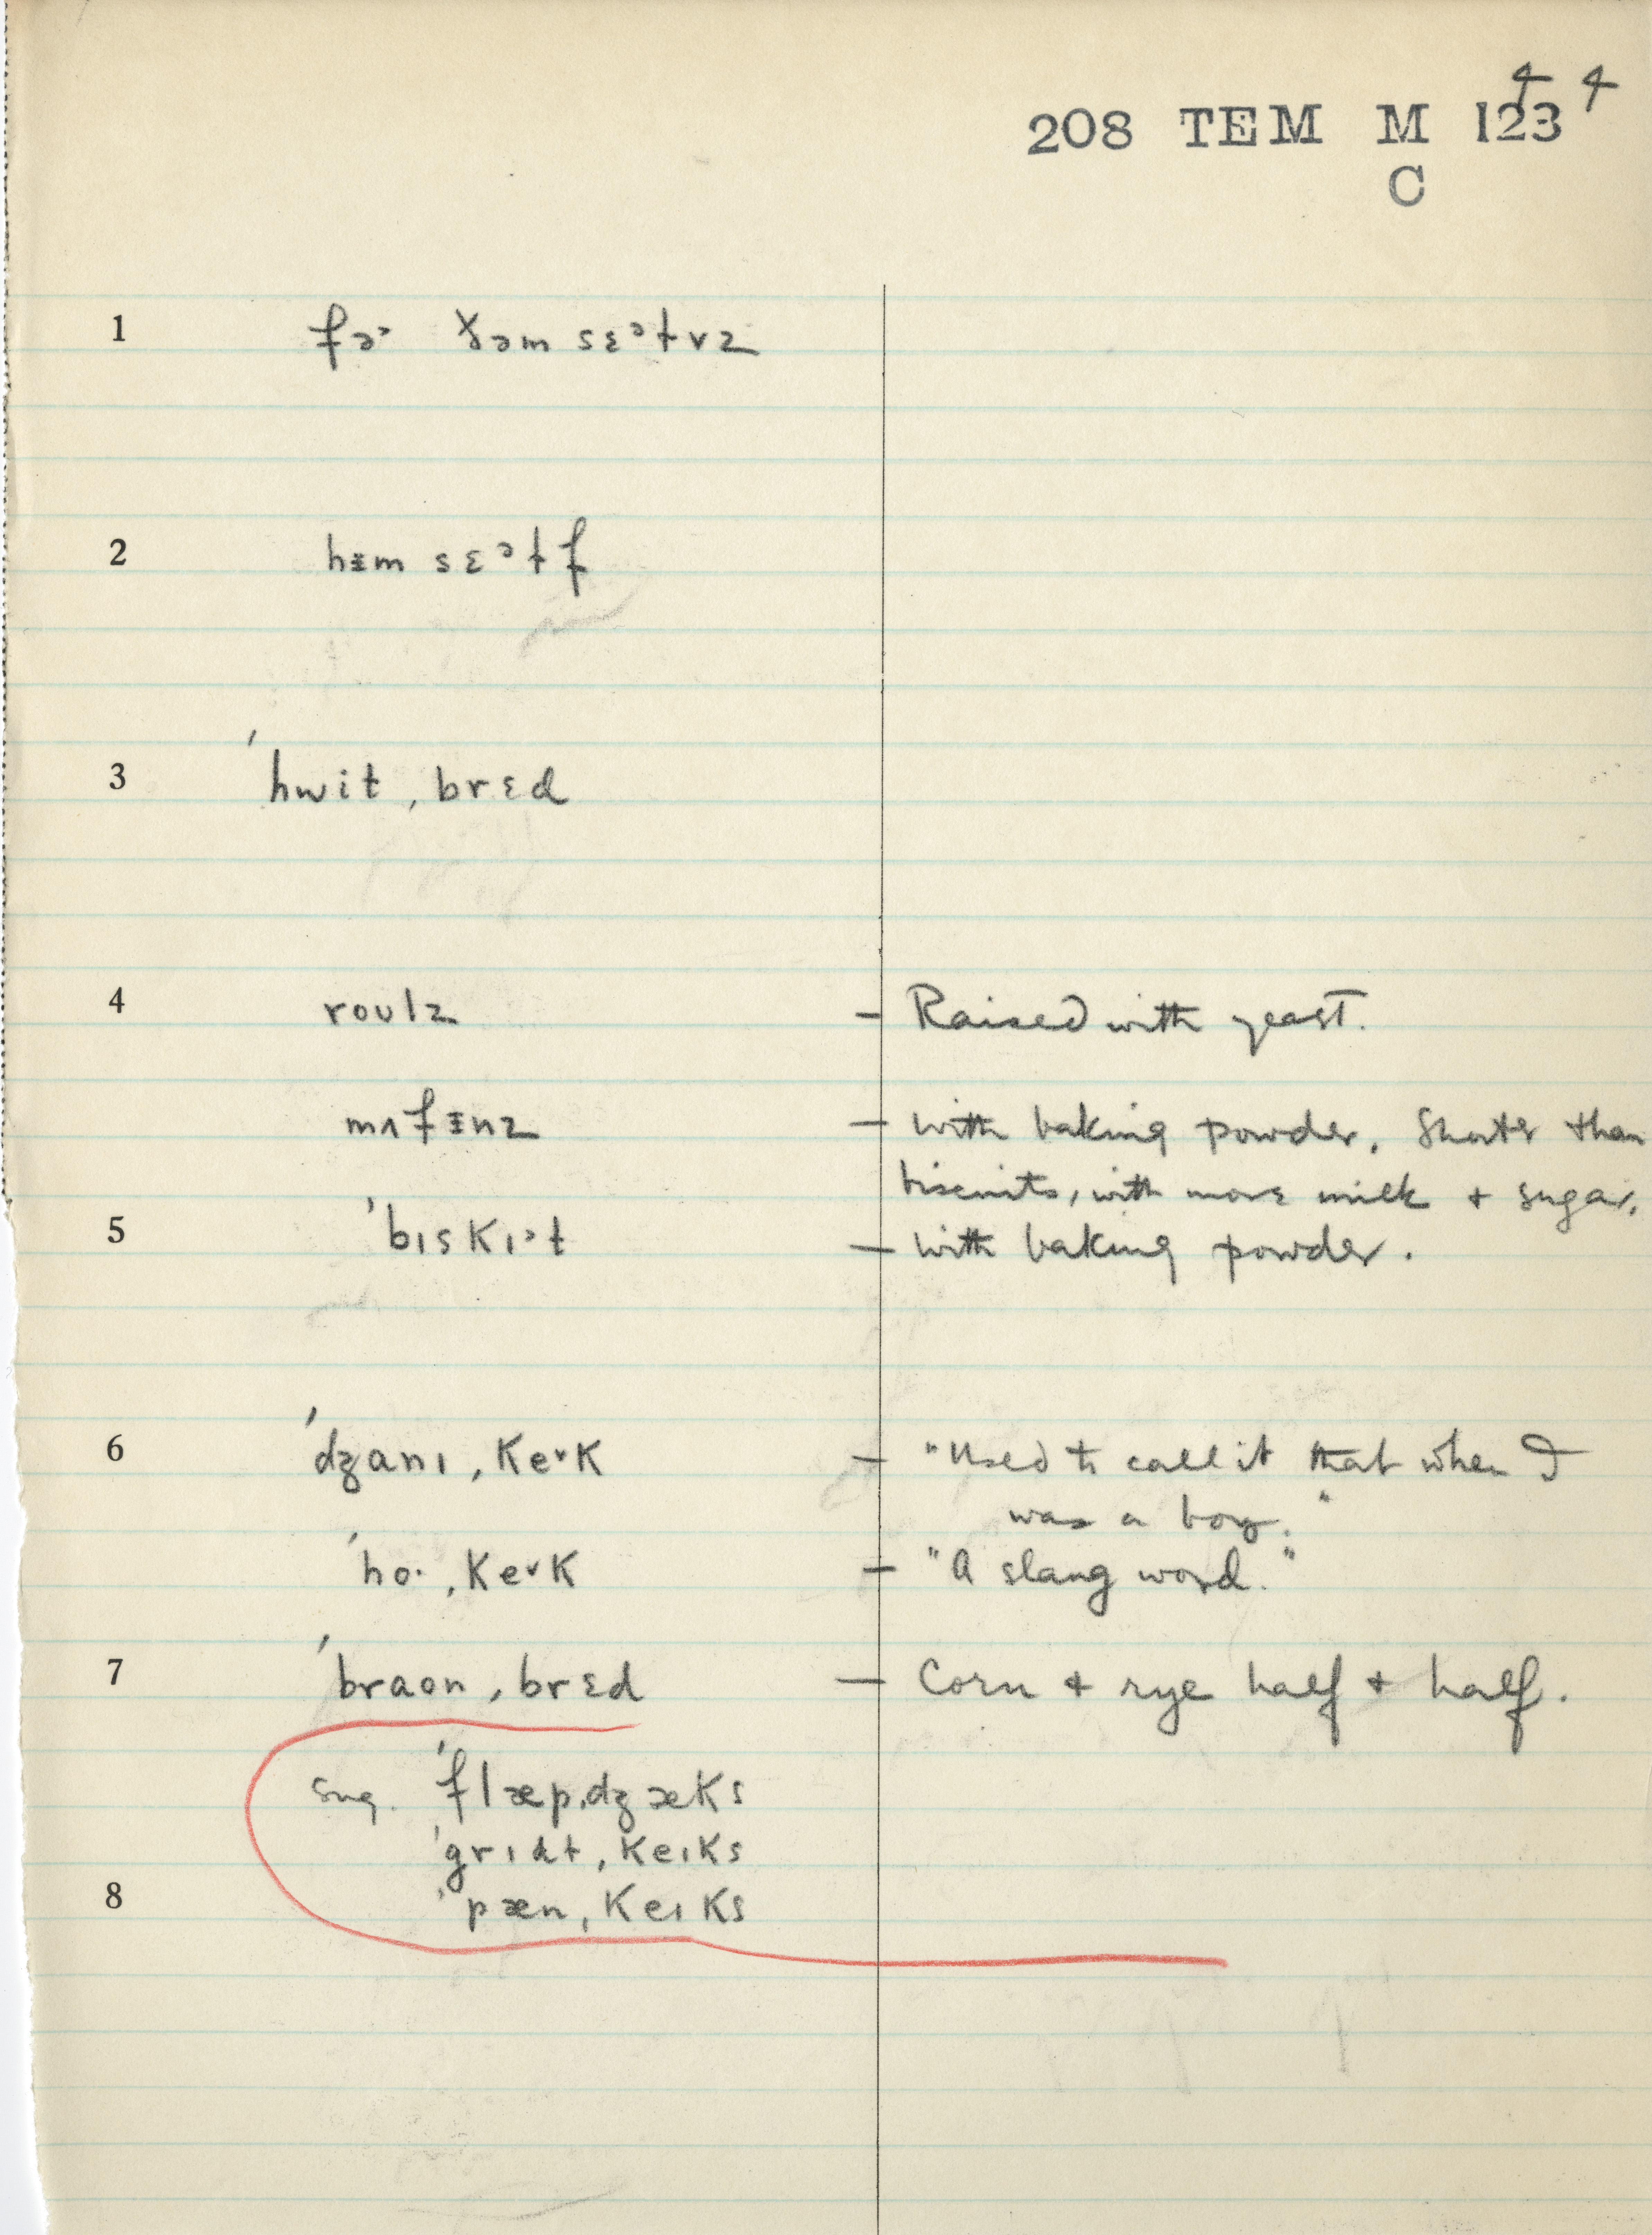 4 4
208 TEM M 123
C
1 fɚ ðəm sɛᵊɫvz
2 hɪ̵m sɛᵊɫf
3 ˈhwit ˌbrɛd
4 roʊlz – Raised with yeast.
mʌfɪ̵nz – with baking powder. Shorter than
biscuits, with more milk + sugar.
5 ˈbɪskɪˑᵊt – with baking powder.
6 ˈdʒanɪ ˌkeˑk – "Used to call it that when I
was a boy."
ˈhoˑ ˌkeˑk – "A slang word."
7 ˈbraʊn ˌbrɛd – Corn + rye half + half.
sug. ˈflæpˌdʒæks
ˈgrɪdɫ ˌkeɪks
8 ˈpæn ˌkeɪks